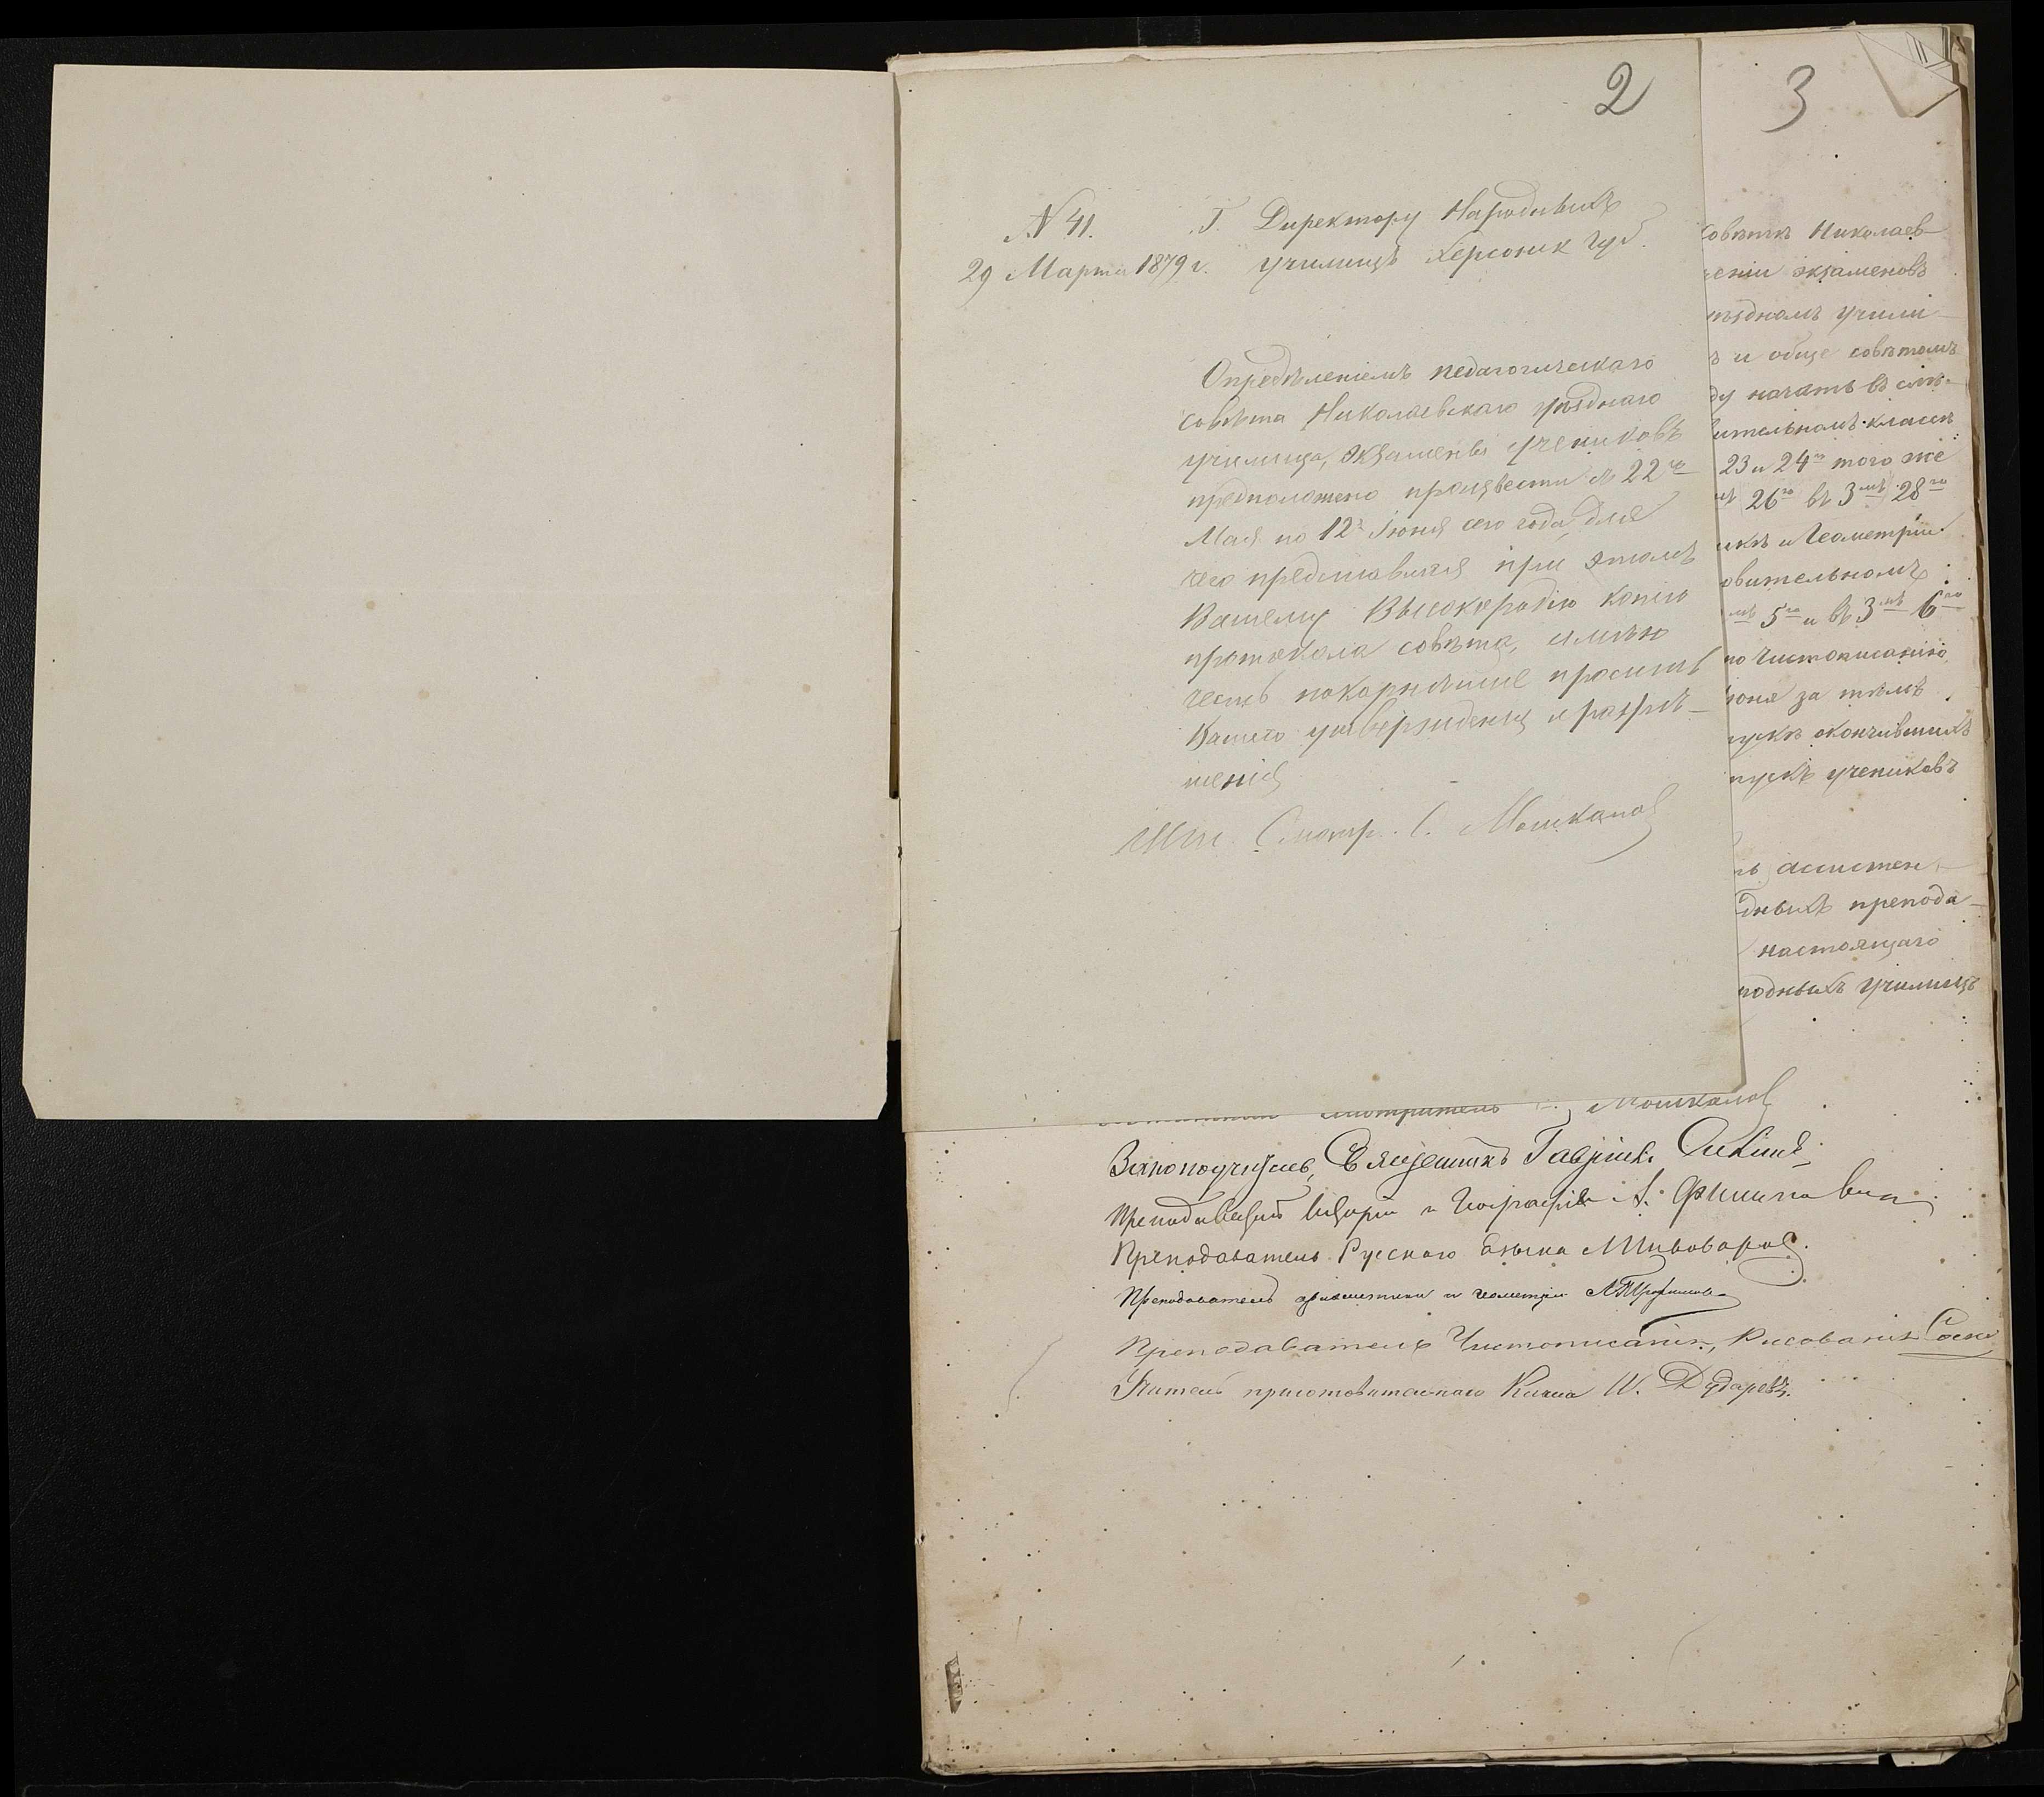 2
N 41.
29 Марта 1879 г.
Г. Директору Народныхъ
училищъ Херсонск губ.
Опредѣленіемъ педагогическаго
совѣта Николаевскаго уѣзднаго
училища, экзамены учениковъ
предположено произвести съ 22го
Мая по 12е Іюня сего года, для
чего представляя при этомъ
Вашему Высокородію копію
протокола совѣта, имѣю
честь покорнѣйше просить
Вашего утвержденія и разрѣ-
шенія
Шт. Смотр. С. Машкалов
3
Совѣтъ Николаев
еніи экзаменовъ
ѣздномъ учили-
ъ и обще совѣтомъ
ду начать въ слѣ-
вительномъ классѣ
23 и 24го того же
мъ 26го въ 3мъ 28го
икѣ и Геометріи
овительномъ
мъ 5го и въ 3мъ 6го
по Чистописанію
юня за тѣмъ
пускъ окончившихъ
пускъ учениковъ
ь ассистен-
дныхъ препода-
настоящаго
родныхъ училищъ
смотритель С. Машкалов
Законоучитель, Священникъ Гавріилъ
Преподаватель Исторіи и Географіи А. Филиппович
Преподаватель Русскаго Языка М Пивоваров.
Преподаватель ариѳметики и геометріи А Трофимов
Преподаватель Чистописанія, Рисованія
Учитель приготовительнаго Класса И. Дударевъ.